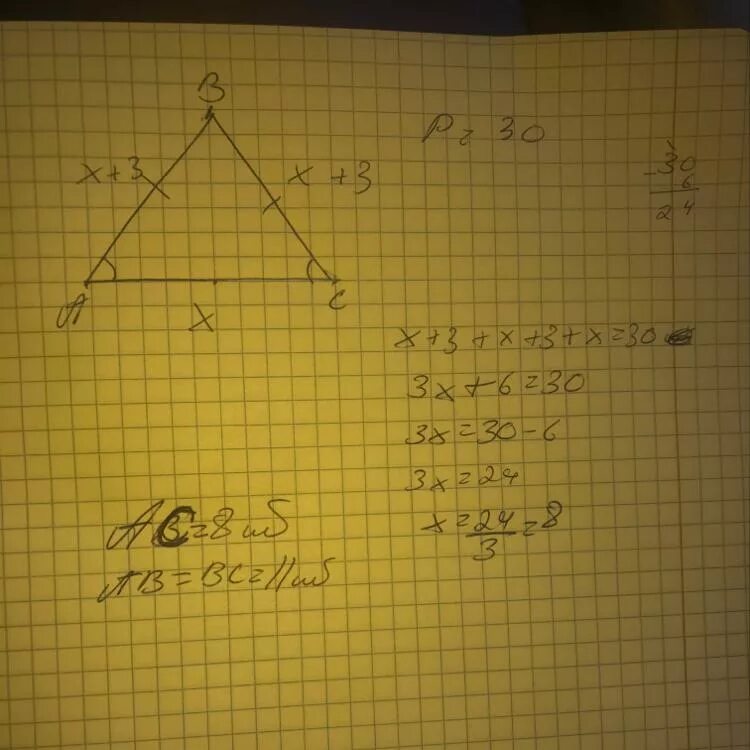 B
P = 30
x+3
x +3
30
- 6
24
A
C
x
x+3+x+3+x=30
3x+6=30
3x=30-6
3x=24
x=24/3=8
AC=8
AB=BC=11